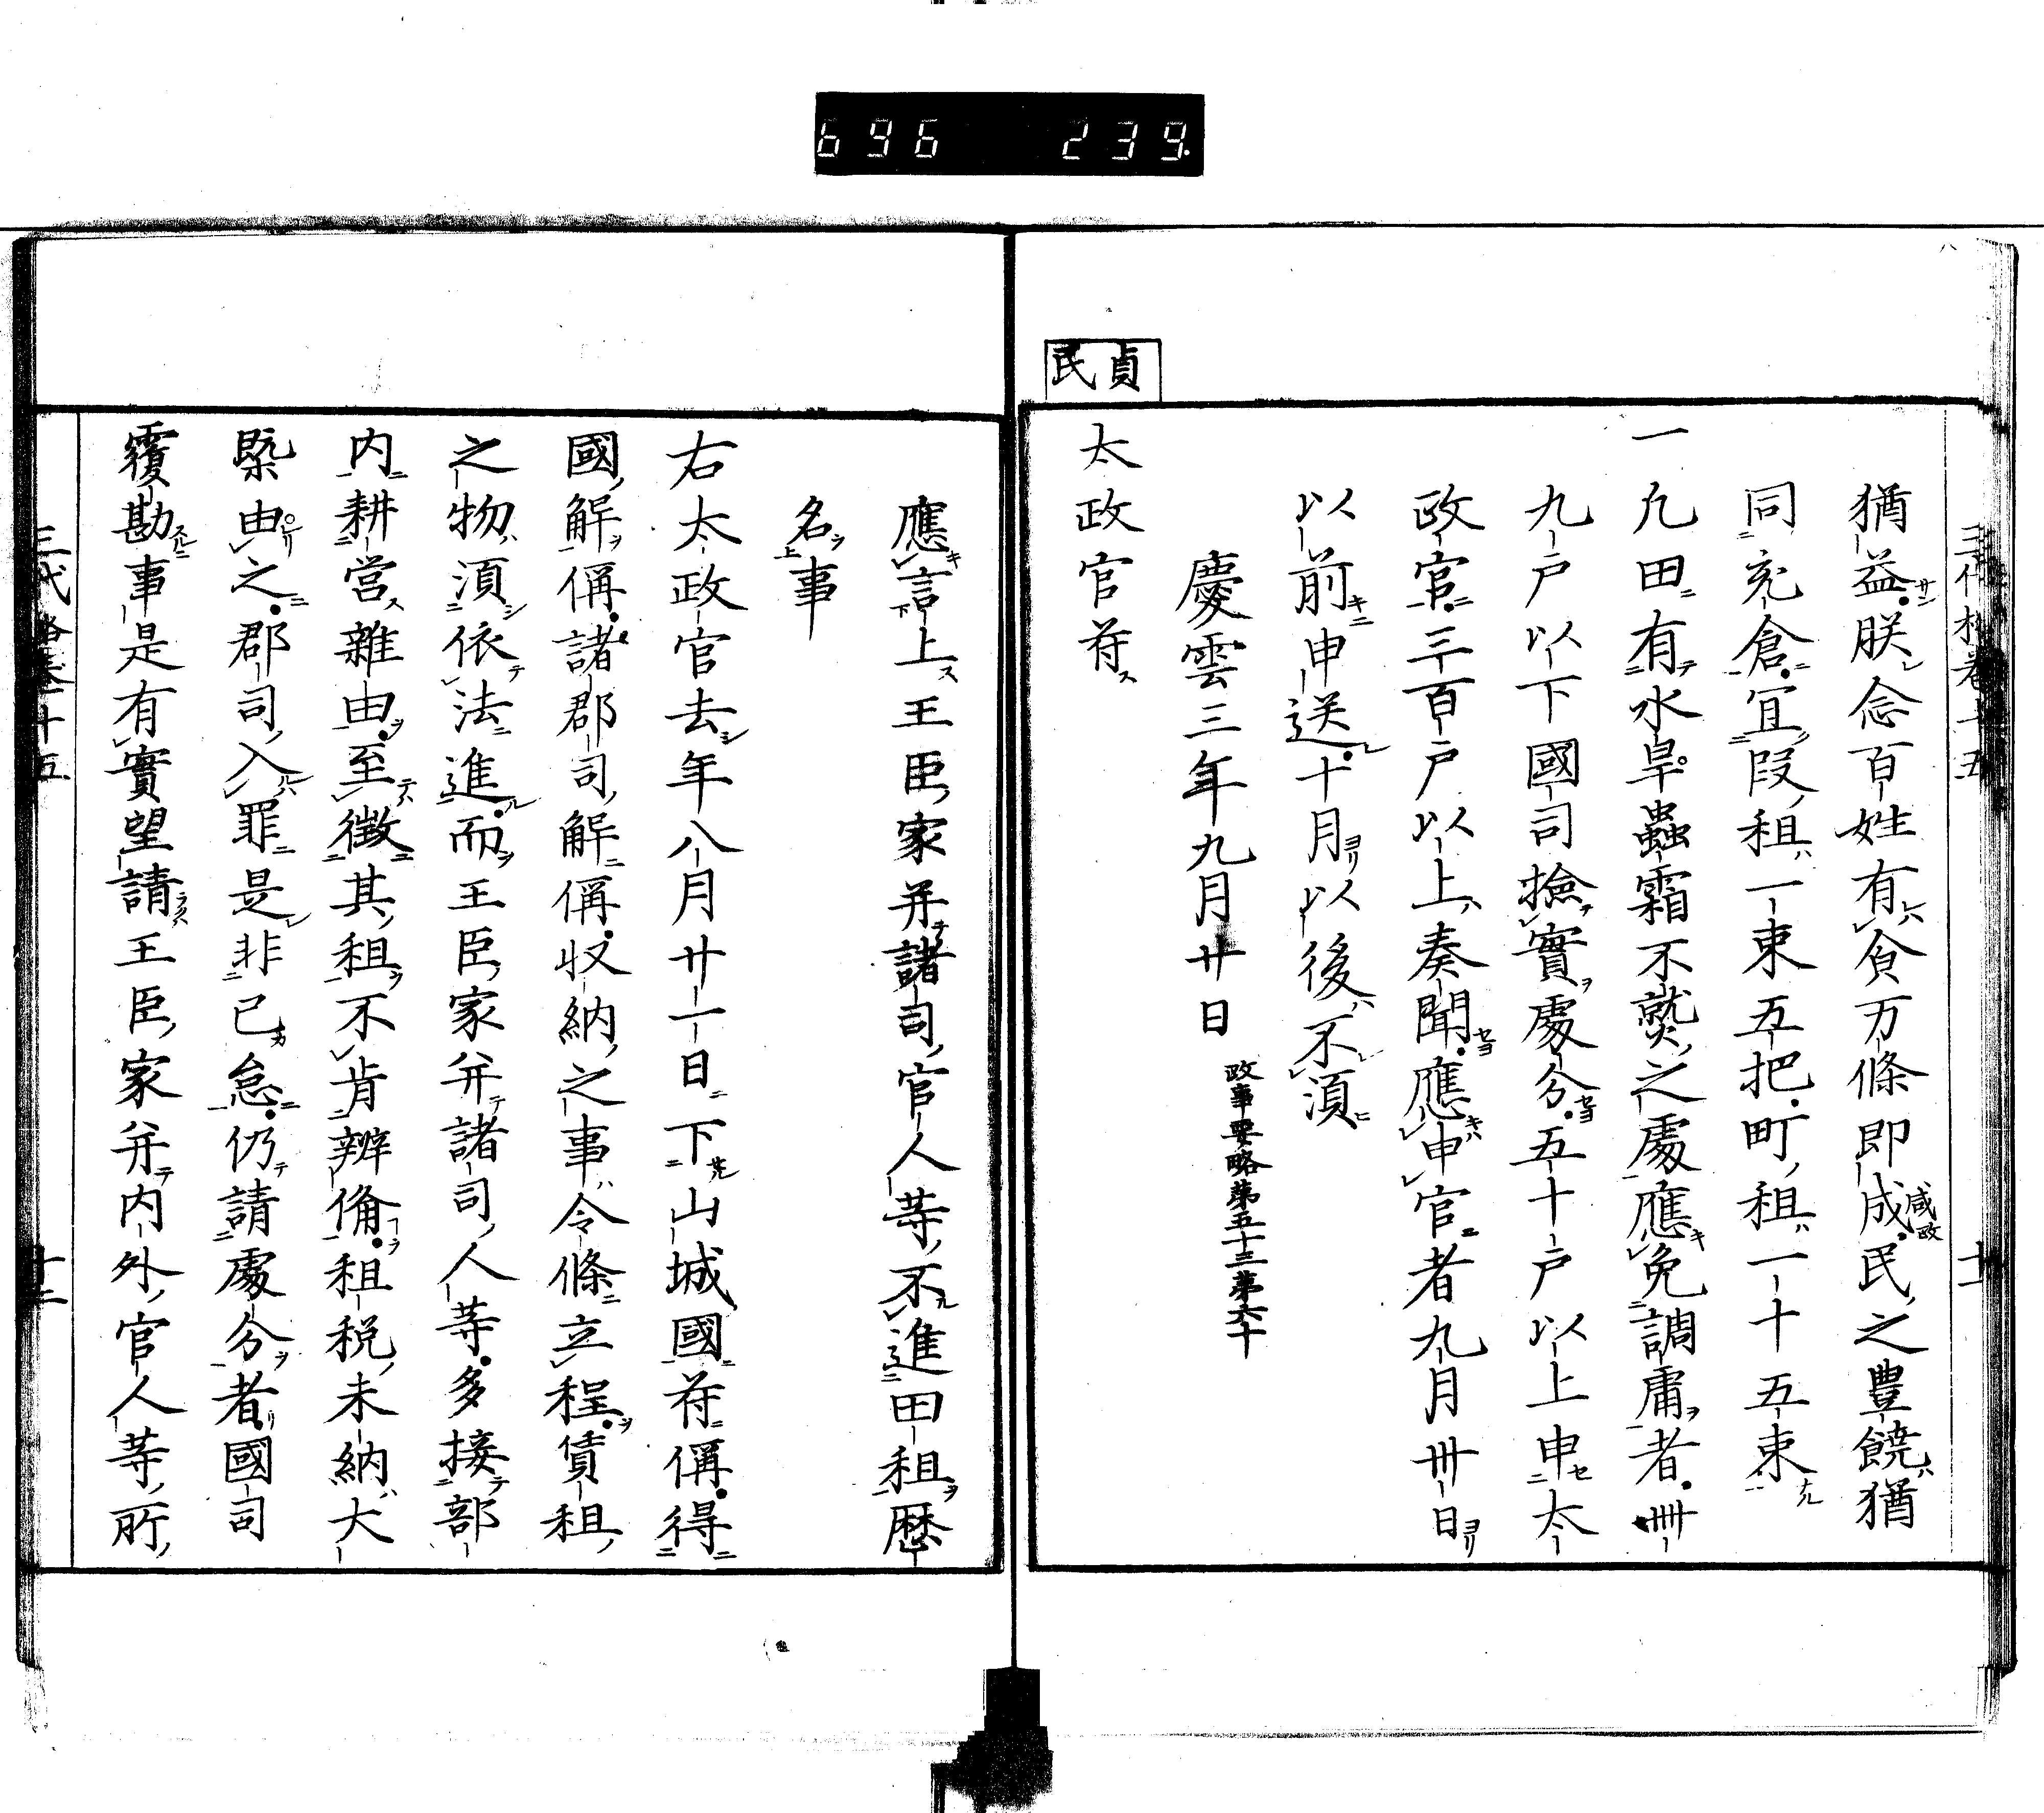 696 239
三代格卷十五
十一
猶益朕念百姓有貧万條即成民之豊饒猶
咸政
同充倉宜段租一束五把町租一十五束
一凡田有水旱蟲霜不熟之處應免調庸者卌
九戸以下國司撿實處分五十戸以上申太
政官三百戸以上奏聞應申官者九月卅日
以前申送十月以後不湏
慶雲三年九月廿日
政事要略第五十三第六十
貞民
太政官苻
應言上王臣家并諸司官人等不進田租歴
名事
右太政官去年八月廿一日下山城國苻偁得
國解偁諸郡司解偁収納之事令條立程賃租
之物湏依法進而王臣家并諸司人等多接部
内耕営雜由至徴其租不肯辨俻租税未納大
槩由之郡司入罪是非己怠仍請處分者國司
覆勘事是有實望請王臣家并内外官人等所
三代格卷十五
十二